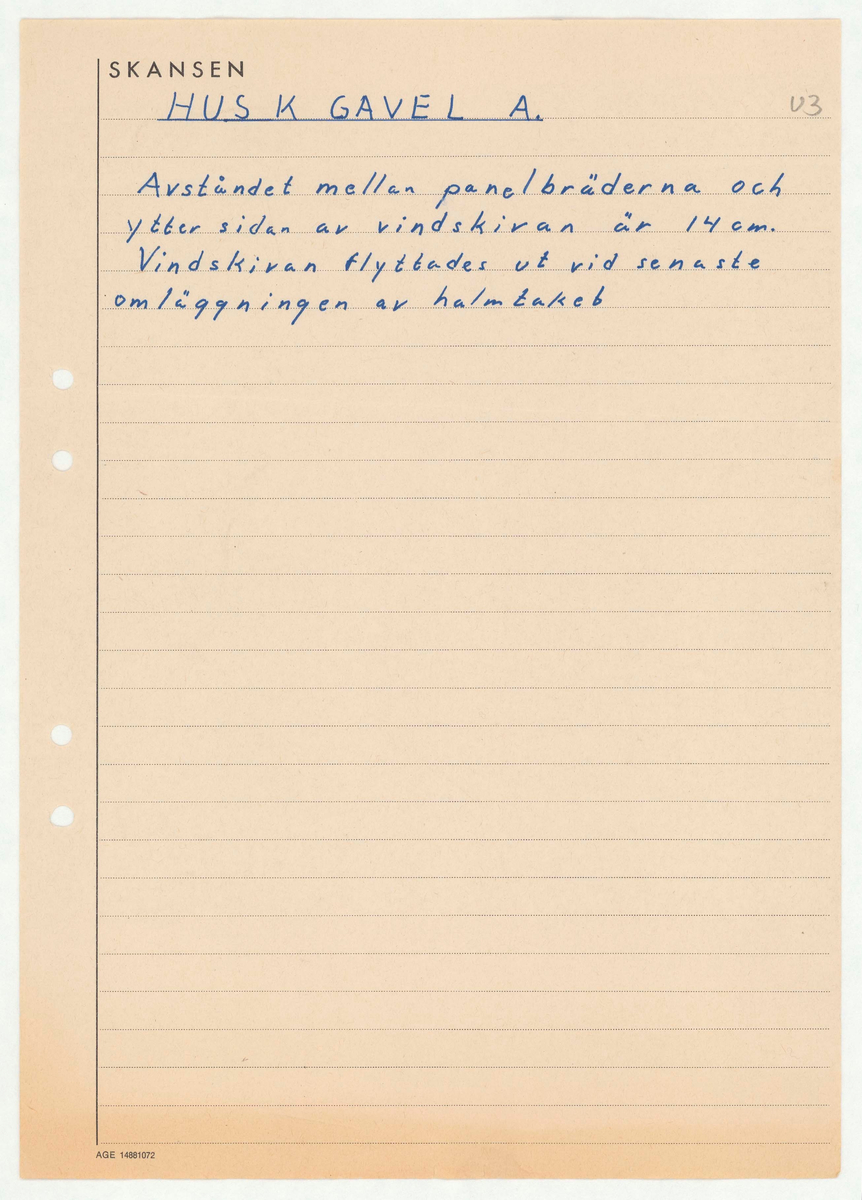 SKANSEN
HUS K GAVEL A.
U3
Avståndet mellan panelbräderna och
ytter sidan av vindskivan är 14 cm.
Vindskivan flyttades ut vid senaste
omläggningen av halmtaket
AGE 14881072